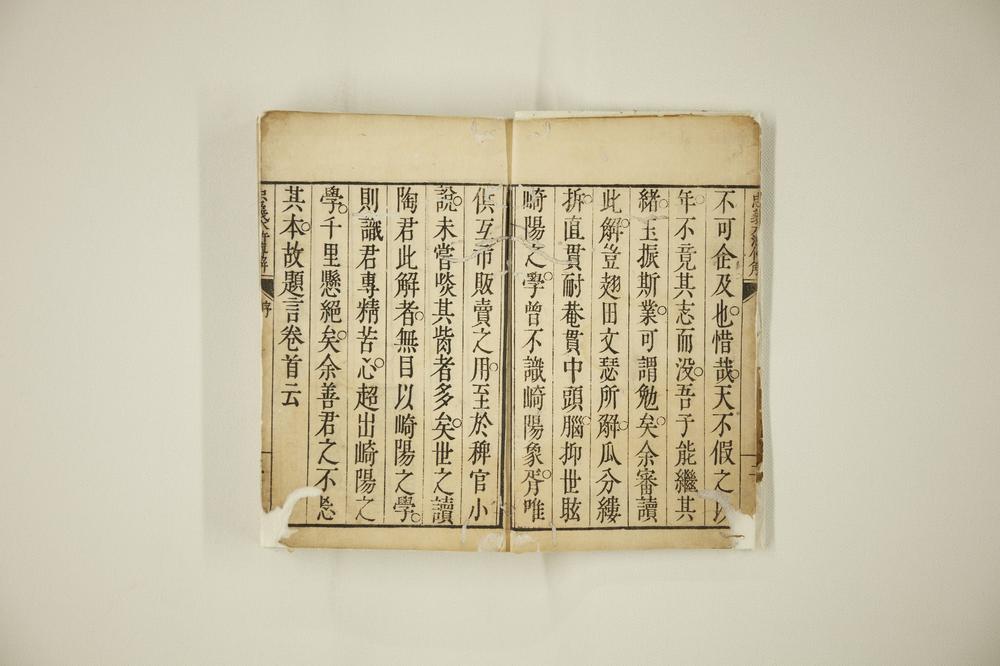 不可企及也。惜哉。天不假之以
年。不竟其志而没。吾子能繼其
緒。玉振斯業。可謂勉矣。余審讀
此解。豈翅田文瑟所解。瓜分縷
拆。直貫耐菴貫中頭腦。抑世眩
崎陽之學。曾不識崎陽象胥。唯
供互市販賣之用。至於稗官小
說。未嘗啖其胾者多矣。世之讀
陶君此解者。無目以崎陽之學。
則識君專精苦心。超出崎陽之
學。千里懸絕矣。余善君之不忘
其本。故題言卷首云
序